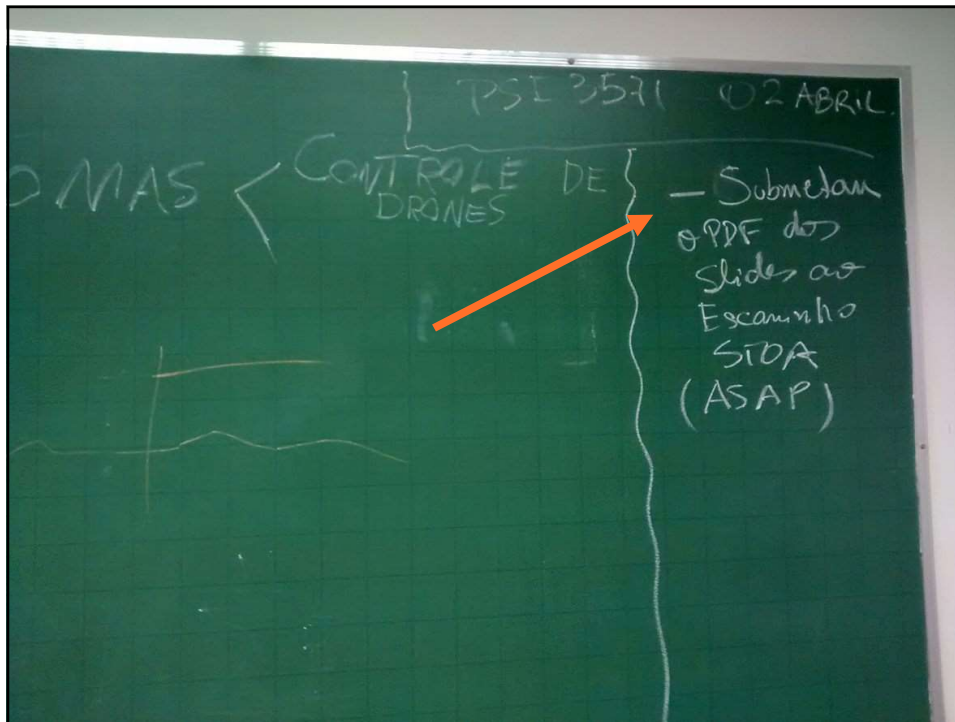 PSI 3571 02 ABRIL.
OMAS < CONTROLE DE
DRONES
— Submetam
o PDF dos
slides ao
Escaninho
STOA
(ASAP)